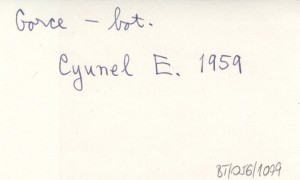 Gorce – bot.
Cyunel E. 1959
BT/056/1079